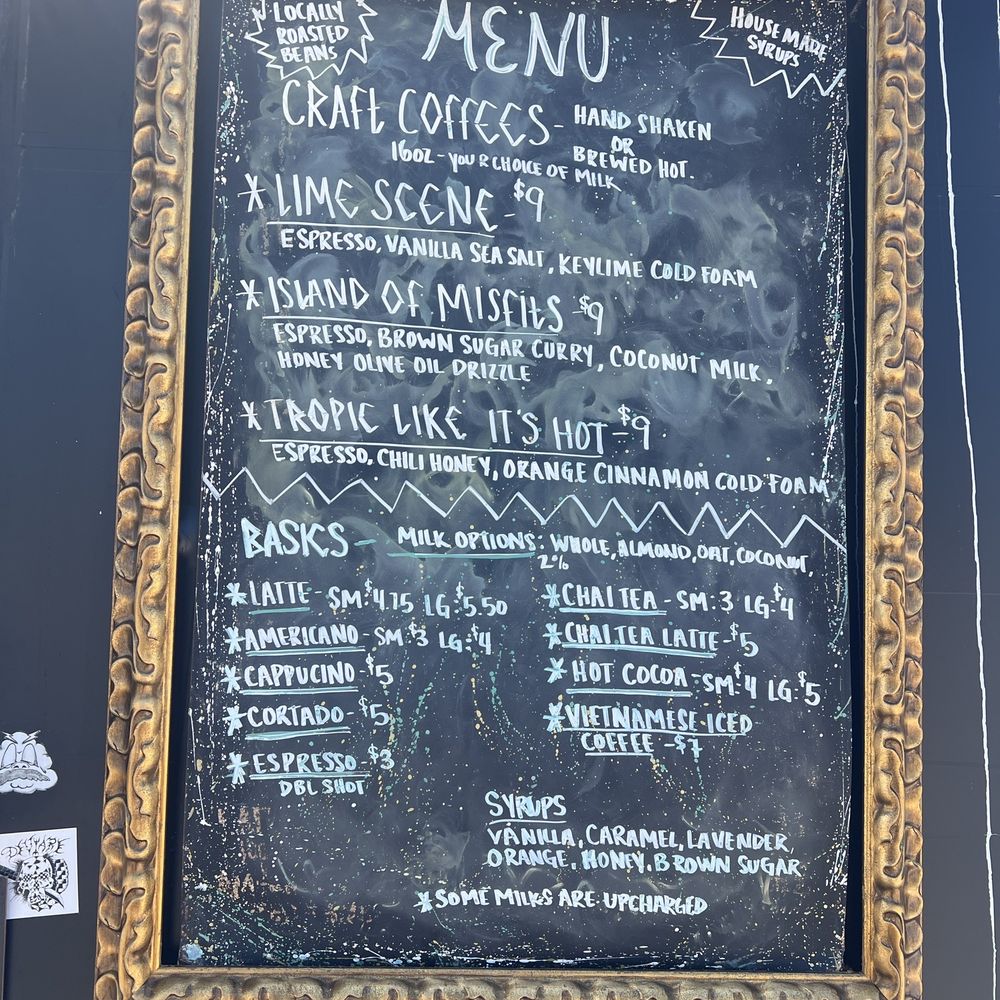 LOCALLY
ROASTED
BEANS
MENU
HOUSE MADE
SYRUPS
CRAFT COFFEES- HAND SHAKEN
OR
BREWED HOT.
16OZ - YOUR CHOICE OF MILK
* LIME SCENE - $9
ESPRESSO, VANILLA SEA SALT, KEYLIME COLD FOAM
* ISLAND OF MISFITS $9
ESPRESSO, BROWN SUGAR CURRY, COCONUT MILK,
HONEY OLIVE OIL DRIZZLE
* TROPIC LIKE IT'S HOT - $9
ESPRESSO, CHILI HONEY, ORANGE CINNAMON COLD FOAM
BASICS - MILK OPTIONS: WHOLE, ALMOND, OAT, COCONUT,
2%
* LATTE - SM: $4.75 LG: $5.50
* AMERICANO - SM: $3 LG: $4
* CAPPUCINO - $5
* CORTADO - $5
* ESPRESSO $3
DBL SHOT
* CHAI TEA - SM: 3 LG: $4
* CHAI TEA LATTE - $5
* HOT COCOA - SM: $4 LG: $5
* VIETNAMESE ICED
COFFEE - $7
SYRUPS
VANILLA, CARAMEL, LAVENDER,
ORANGE, HONEY, BROWN SUGAR
* SOME MILKS ARE UPCHARGED